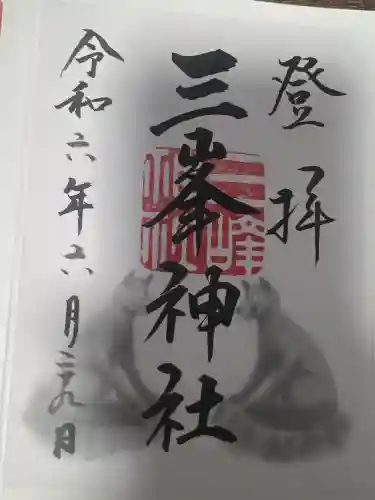 登拝
三峯神社
令和六年六月二十九日